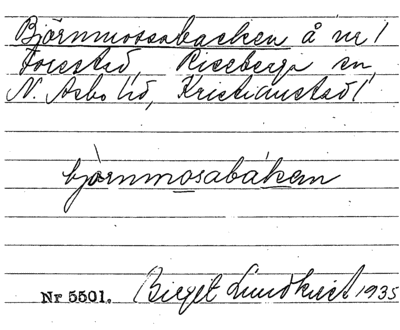 Björnmossabacken å nr 1
Forestad Riseberga sn
N. Åsbo hd, Kristianstad l
björnmosabákem
Nr 5501. Birget Lundkvist 1935